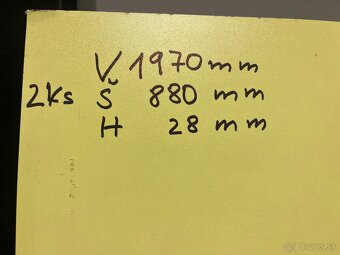 V 1970 mm
2ks Š 880 mm
H 28 mm
Bazos.sk